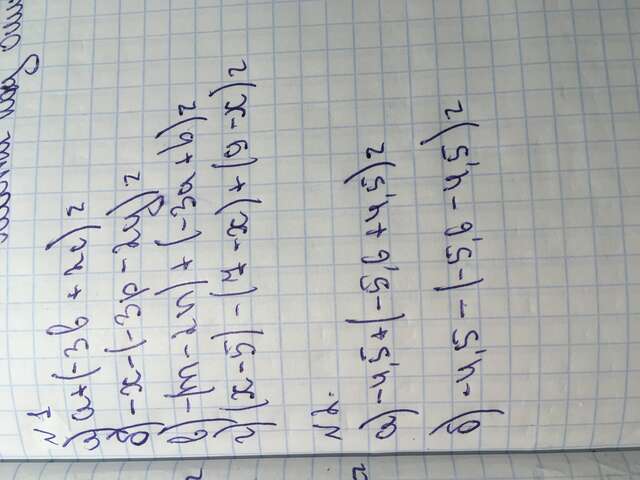 работа над
№1
а) a+(-3b+2c)=
б) -x-(-3p-2y)=
в) -(m-2n)+(-3a+b)=
г) (x-5)-(7-x)+(9-x)=
№2.
а) -4,5+(-5,6+4,5)=
б) -4,5-(-5,6-4,5)=